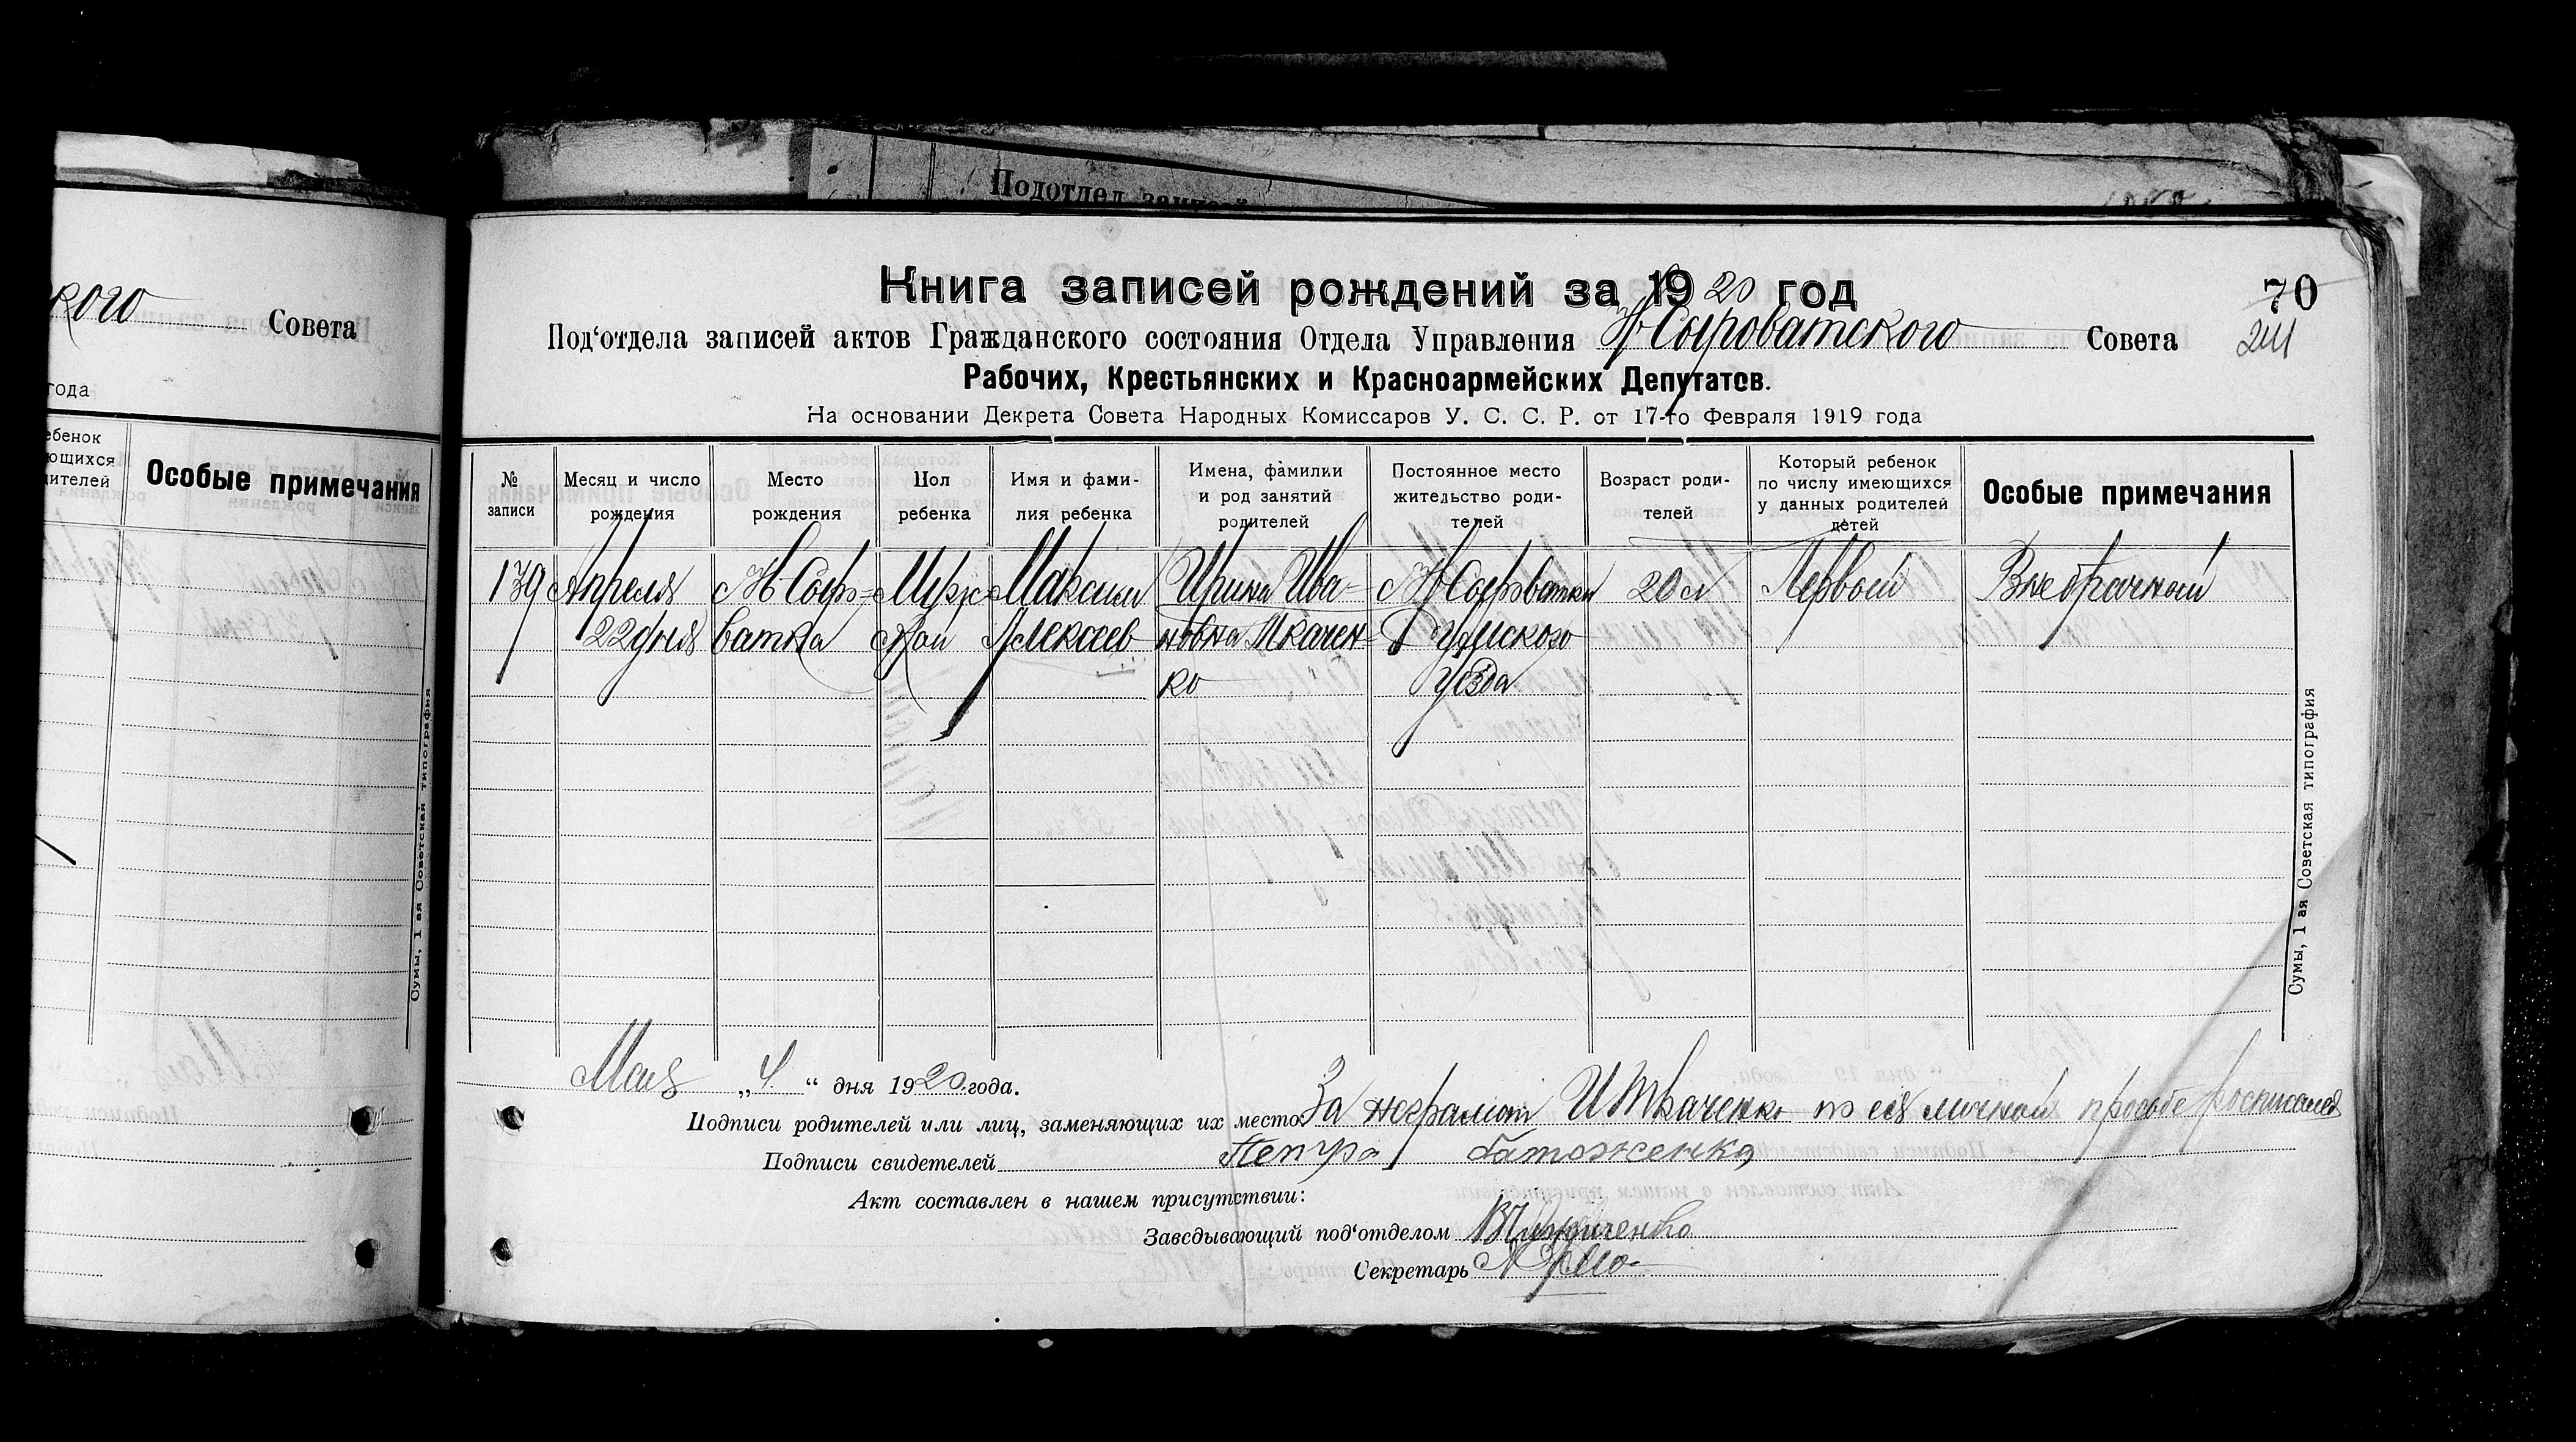 Подотдел записей
кого Совета
года
ебенок
ющихся
дителей
Особые примечания
Сумы, 1 ая Советская типография
Книга записей рождений за 1920 год
70
Под‘отдела записей актов Гражданского состояния Отдела Управления Н Сыроватского Совета
241
Рабочих, Крестьянских и Красноармейских Депутатов.
На основании Декрета Совета Народных Комиссаров У. С. С. Р. от 17-го Февраля 1919 года
№ записи
Месяц и число рождения
Место рождения
Пол ребенка
Имя и фами-
лия ребенка
Имена, фамилии
и род занятий
родителей
Постоянное место
жительство роди-
телей
Возраст роди-
телей
Который ребенок
по числу имеющихся
у данных родителей
детей
Особые примечания
139 Апреля Н Сыр= Муж Максим Ирина Ива= Н Сыроватка 20 л Первый Внебрачный
22 дня ватка ской Алексеев новна Ткачен= Сумского
ко уезда
Сумы, 1 ая Советская типография
Мая „4“ дня 1920 года.
Подписи родителей или лиц, заменяющих их место За неграмот И Ткаченко по ея личной просьбе росписался
Подписи свидетелей Петро Батоженко
Акт составлен в нашем присутствии:
Заведывающий под‘отделом
Секретарь